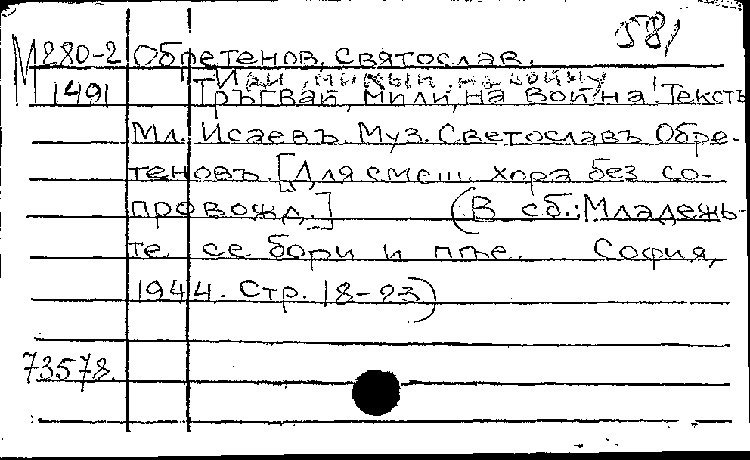 581
М280-2 Обретенов, Святослав.
Иди, милый, на войну
1491 Тръгвай, мили, на война! Текстъ
Мл. Исаевъ. Муз. Светославъ Обре-
теновъ. [Для смеш. хора без со-
провожд.] (В сб.: Младежь-
те се бори и пѣе. София,
1944. Стр. 18-23)
73578